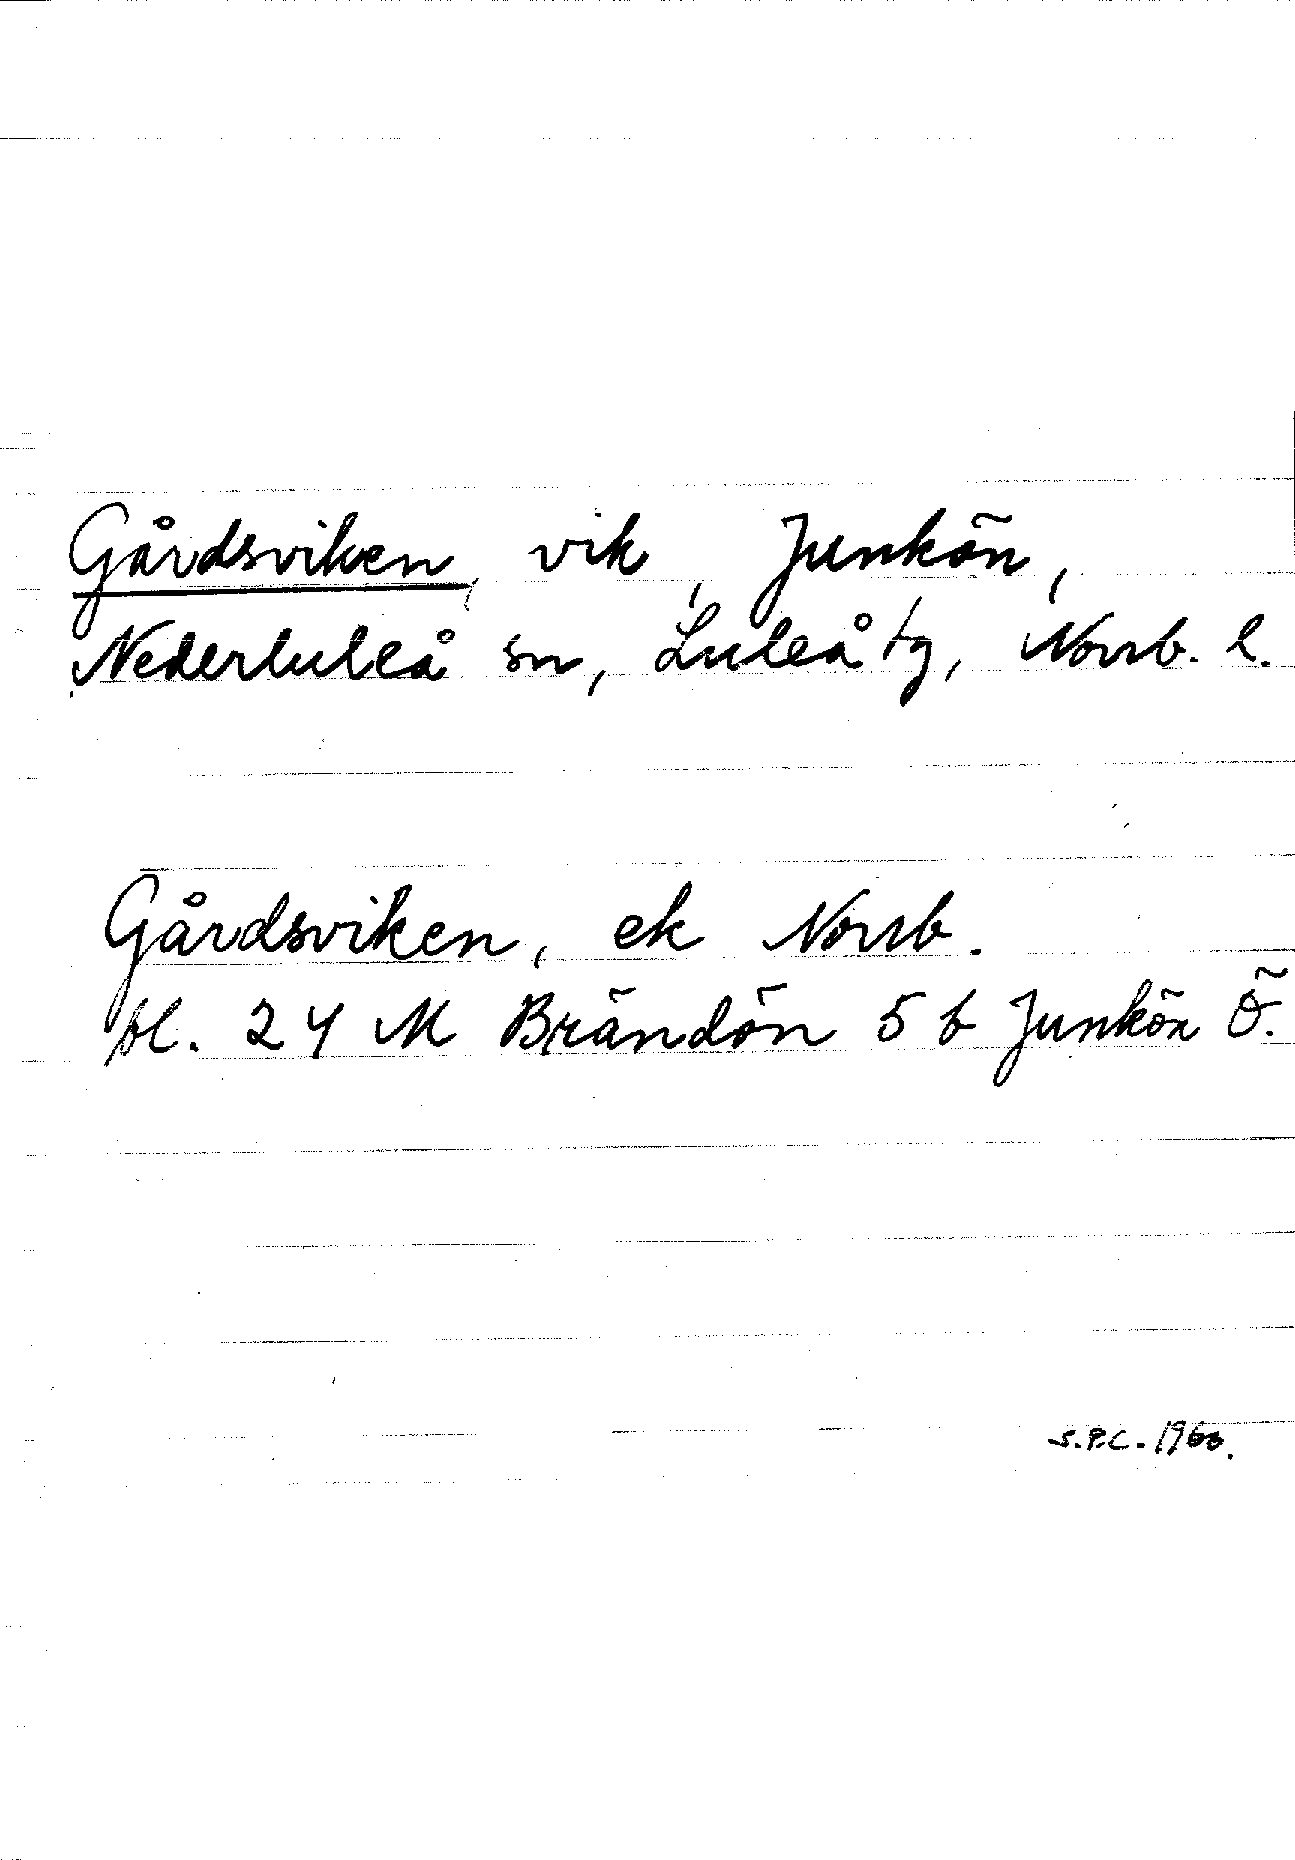 Gårdsviken, vik, Junkön,
Nederluleå sn, Luleå tg, Norrb. l.
Gårdsviken, ek Norrb.
bl. 24 M Brändön 5 b Junkön Ö.
S.P.C. 1960.